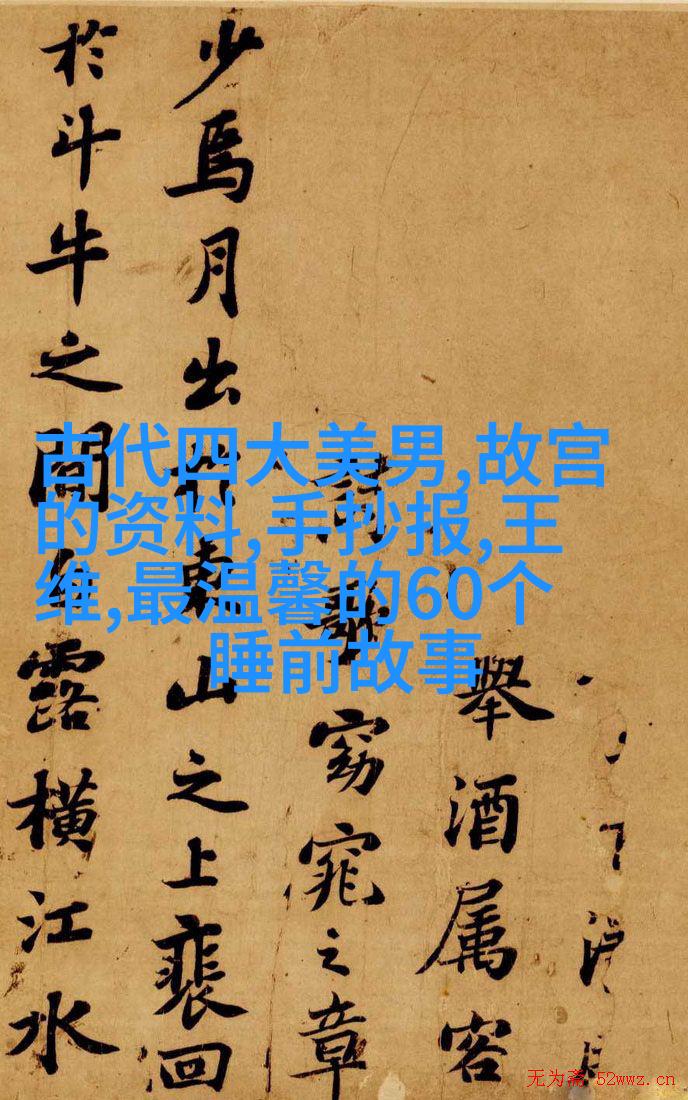 古代四大美男,故宫
的资料,手抄报,王
维,最温馨的60个
睡前故事
舉酒属客
窈窕之章
少焉月出東山之上裴回
於斗牛之間露橫江水
无为斋 52wwz.cn